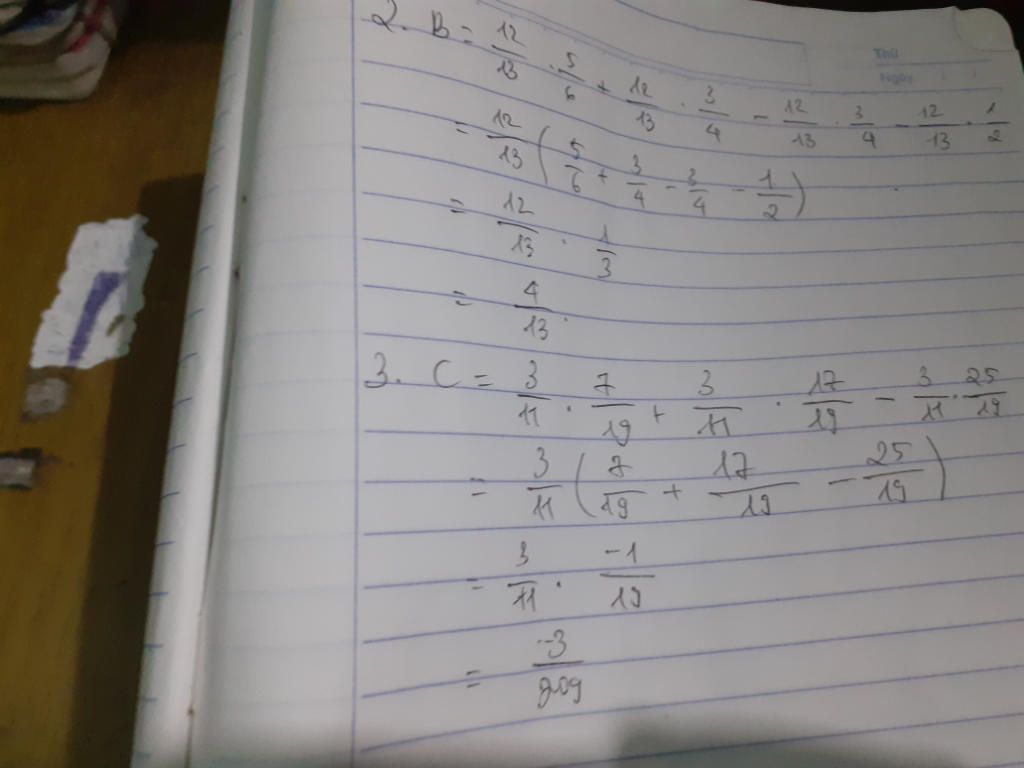 Thứ
Ngày
2. B = 12/13 . 5/6 + 12/13 . 3/4 - 12/13 . 3/4 - 12/13 . 1/2
= 12/13 (5/6 + 3/4 - 3/4 - 1/2)
= 12/13 . 1/3
= 4/13.
3. C = 3/11 . 7/19 + 3/11 . 17/19 - 3/11 . 25/19
= 3/11 (7/19 + 17/19 - 25/19)
= 3/11 . -1/19
= -3/209